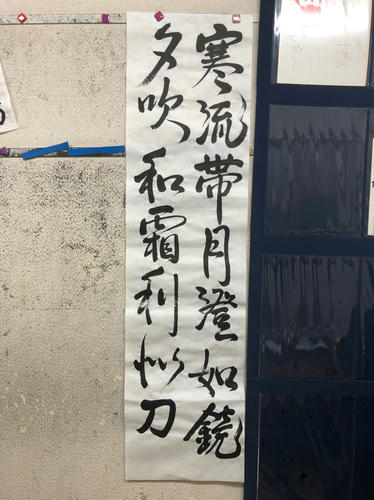 寒流帯月澄如鏡
夕吹和霜利似刀